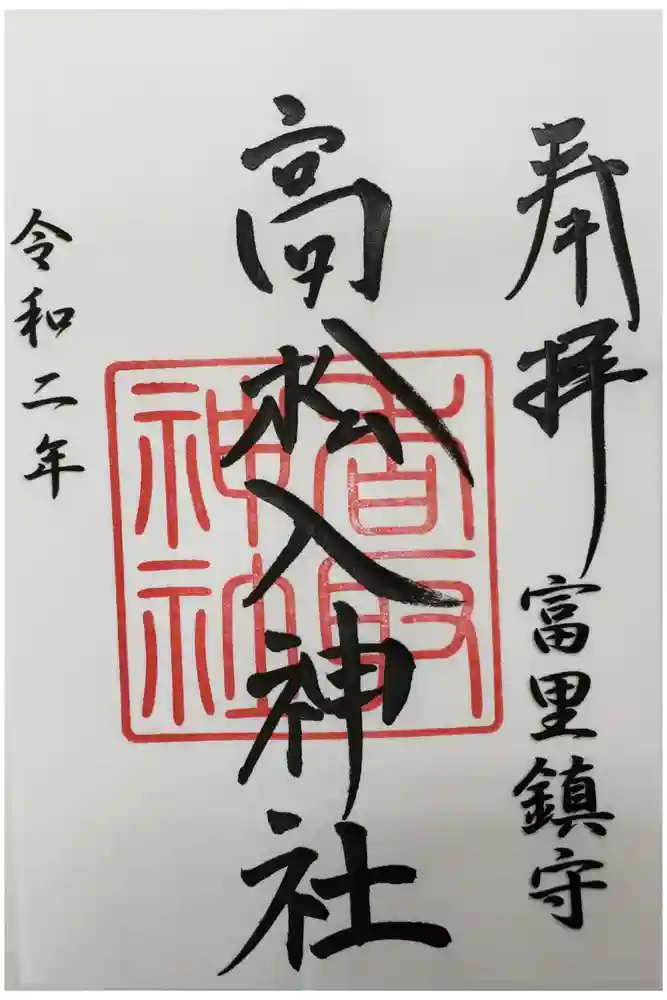 奉拝 富里鎮守
高松入神社
香取神社
令和二年